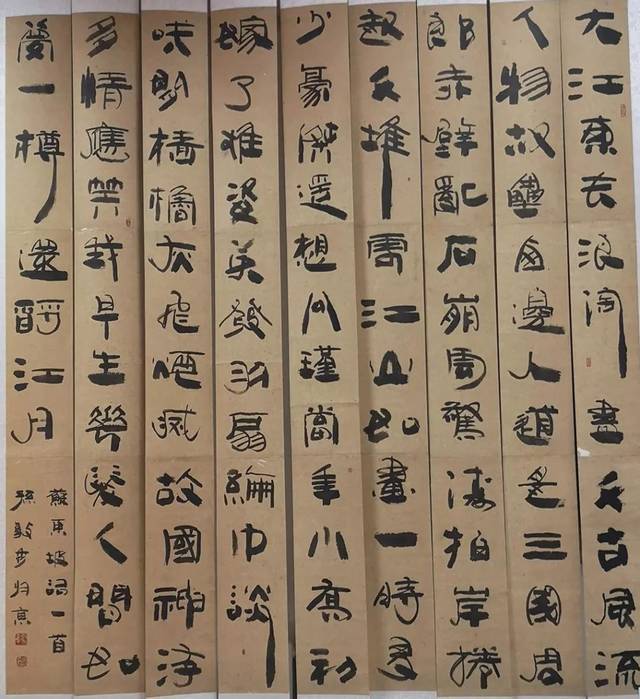 大江東去浪淘盡千古風流
人物故壘西邊人道是三國周
郎赤壁亂石崩雲驚濤拍岸捲
起千堆雪江山如畫一時多
少豪傑遥想公瑾當年小喬初
嫁了雄姿英發羽扇綸巾談
咲間檣櫓灰飛烟滅故國神游
多情應笑我早生華髮人間如
夢一樽還酹江月
蘇東坡詞一首
孫